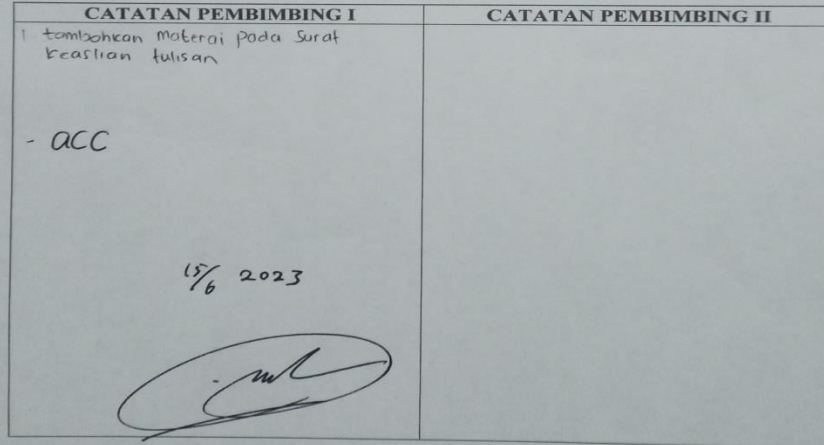 CATATAN PEMBIMBING I
CATATAN PEMBIMBING II
1. tambahkan Materai pada Surat
keaslian tulisan
- acc
15/6 2023